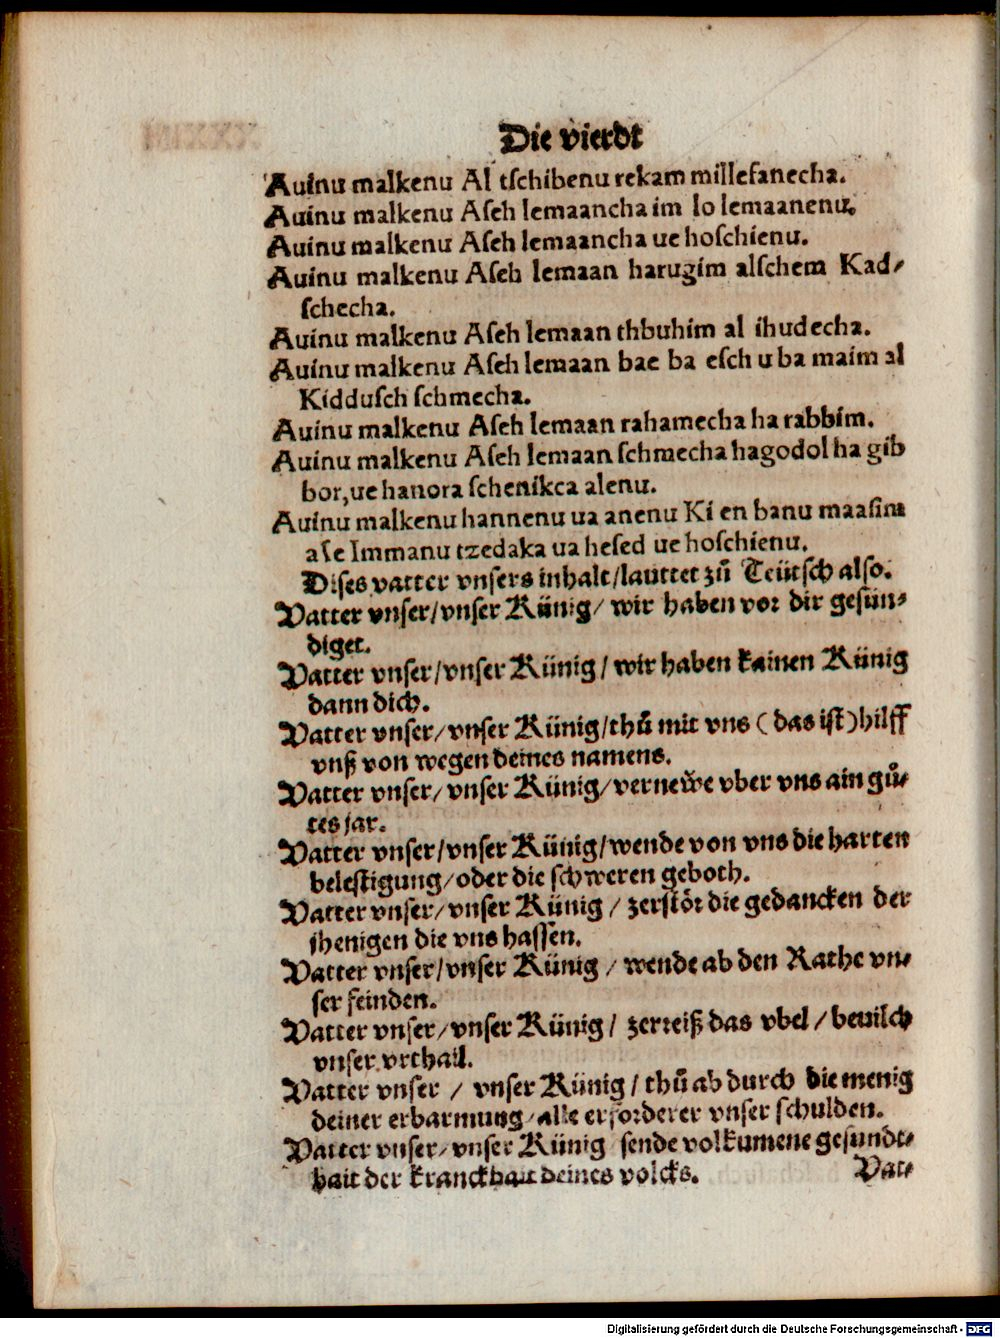 Die vierdt
Auinu malkenu Al tſchibenu rekam millefanecha.
Auinu malkenu Aſeh lemaancha im lo lemaanenu.
Auinu malkenu Aſeh lemaancha ue hoſchienu.
Auinu malkenu Aſeh lemaan harugim alſchem Kad⸗
ſchecha.
Auinu malkenu Aſeh lemaan thbuhim al ihudecha.
Auinu malkenu Aſeh lemaan bae ba eſch u ba maim al
Kidduſch ſchmecha.
Auinu malkenu Aſeh lemaan rahamecha ha rabbim.
Auinu malkenu Aſeh lemaan ſchmecha hagodol ha gib
bor, ue hanora ſchenikca alenu.
Auinu malkenu hannenu ua anenu Ki en banu maaſim
aſe Immanu tzedaka ua heſed ue hoſchienu.
Diſes vatter vnſers inhalt/lauttet zů Teütſch alſo.
Vatter vnſer/vnſer Künig/ wir haben vor dir geſün⸗
diget.
Vatter vnſer/vnſer Künig/wir haben kainen Künig
dann dich.
Vatter vnſer/vnſer Künig/thů mit vns (das iſt) hilff
vnß von wegen deines namens.
Vatter vnſer/ vnſer Künig/verneẅe vber vns ain gů⸗
tes jar.
Vatter vnſer/vnſer Künig/wende von vns die harten
beleſtigung/oder die ſchweren geboth.
Vatter vnſer/ vnſer Künig / zerſtör die gedancken der
jhenigen die vns haſſen.
Vatter vnſer/vnſer Künig / wende ab den Rathe vn⸗
ſer feinden.
Vatter vnſer/vnſer Künig/ zerreiß das vbel/ beuilch
vnſer vrthail.
Vatter vnſer / vnſer Künig/ thů ab durch die menig
deiner erbarmung/alle erforderer vnſer ſchulden.
Vatter vnſer/vnſer Künig ſende volkumene geſundt⸗
hait der kranckhait deines volcks.
Vat⸗
Digitalisierung gefördert durch die Deutsche Forschungsgemeinschaft - DFG